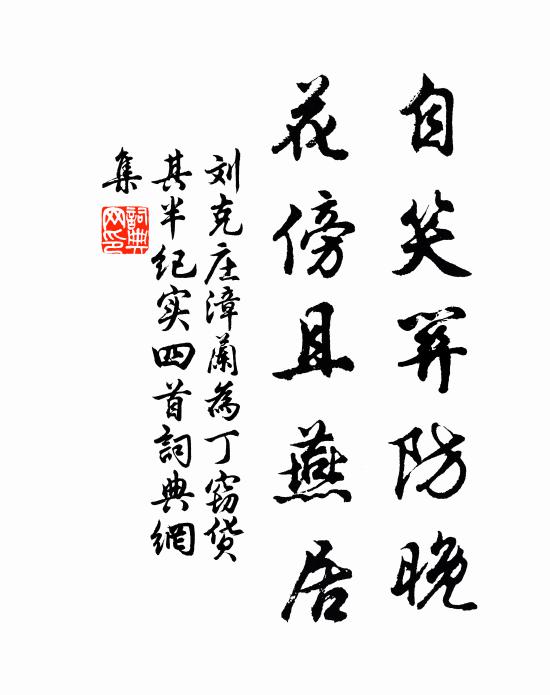 自笑關防晚
花傍且燕居
刘克庄漳蘭為丁窃货
其半纪实四首詞典網
集
詞典
网印